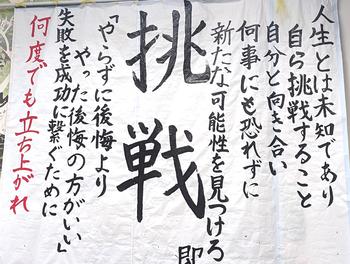 人生とは未知であり
自ら挑戦すること
自分と向き合い
何事にも恐れずに
新たな可能性を見つけろ
挑戦
即
「やらずに後悔より
やった後悔の方がいい」
失敗を成功に繋ぐために
何度でも立ち上がれ